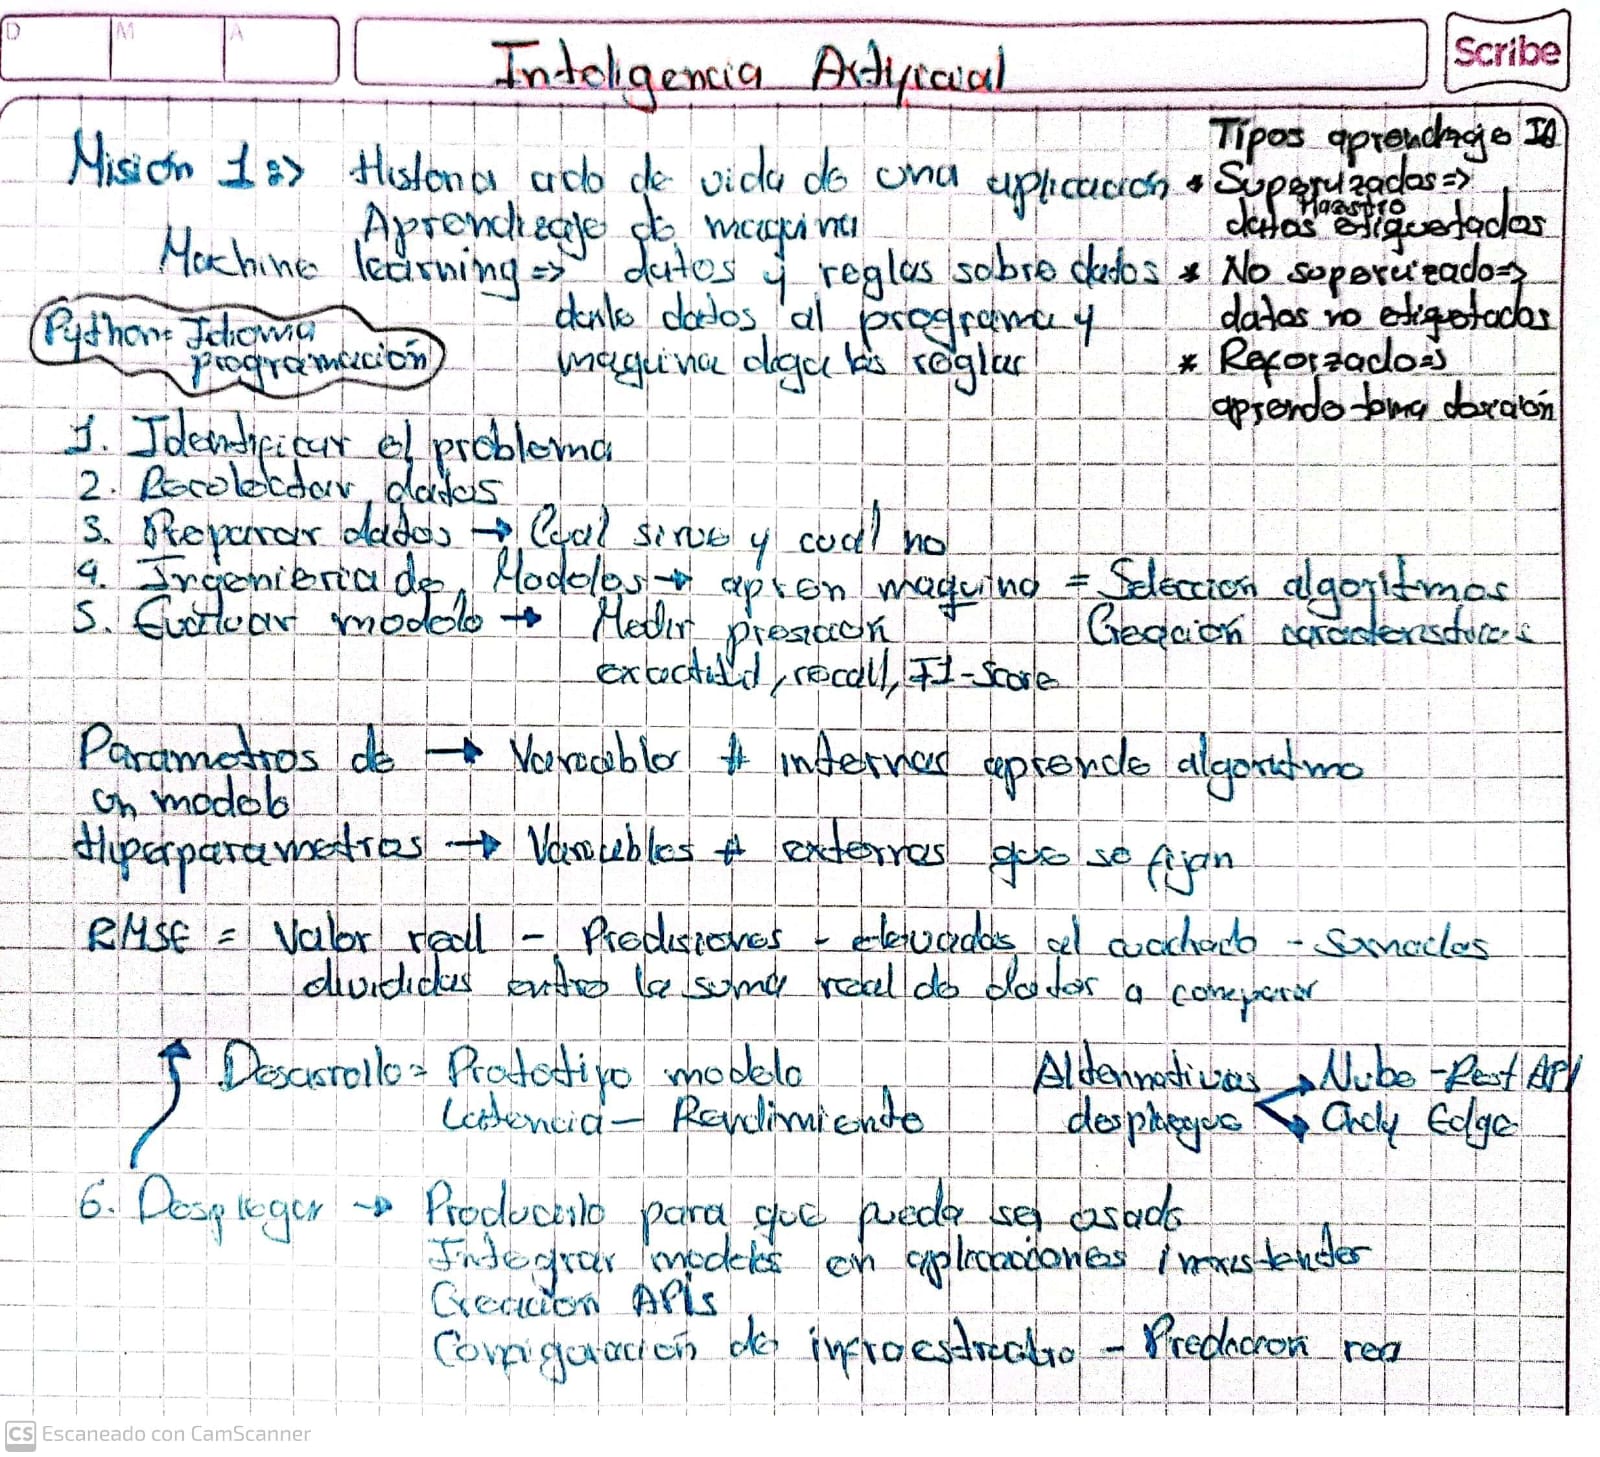 D M A
Inteligencia Artificial
Scribe
Misión 1 => Historia ciclo de vida de una aplicación
Aprendizaje de maquina
Machine learning => datos y reglas sobre datos
darle datos al programa y
maquina diga las reglas
Python = Idioma
programación
Tipos aprendizaje IA
* Supervizados =>
Maestro
datos etiquetados
* No supervizado =>
datos no etiquetados
* Reforzado =>
aprende toma
1. Identificar el problema
2. Recolectar datos
3. Preparar datos → Cual sirve y cual no
4. Ingenieria de Modelos → apren maquina = Selección algoritmos
5. Evaluar modelo → Medir presición Creación caracteristicas
exactitud, recall, F1-Score
Parametros de → Variable # internas aprende algoritmo
un modelo
Hiperparametros → Variables # externas que se fijan
RMSE = Valor real - Predisiones - elevadas al cuadrado - Sumadas
divididas entre la suma real de datos a comparar
Desarrollo = Prototipo modelo
Latencia - Rendimiento
Alternativas → Nube - Rest API
despliegue → Edge
6. Desplegar → Producirlo para que pueda ser usado
Integrar modelos en aplicaciones /
Creación APIs
Configuración de - rea
CS Escaneado con CamScanner